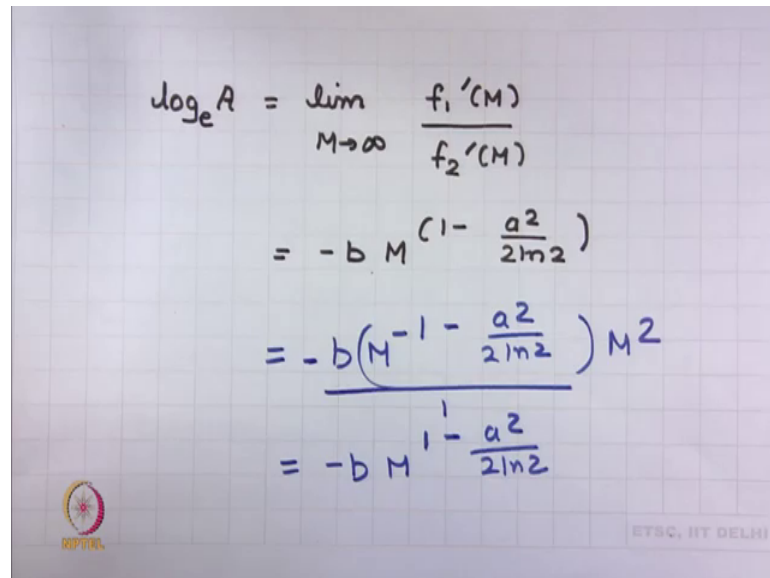 logₑ A = lim M→∞ f₁′(M) / f₂′(M)
= -b M^(1 - a²/2ln2)
= -b(M^-1 - a²/2ln2) M²
= -b M^1 - a²/2ln2
NPTEL
ETSC, IIT DELHI